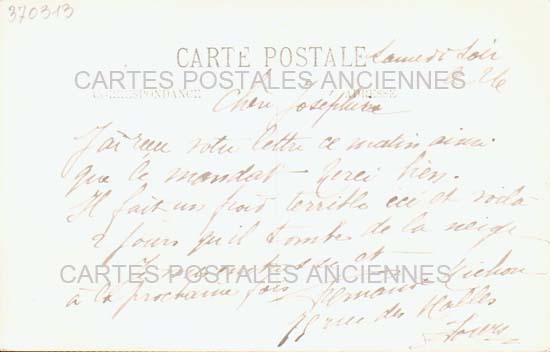 370313
Samedi soir
CARTE POSTALE
26
CARTES POSTALES ANCIENNES
CORRESPONDANCE
ADRESSE
Chère Joséphine
J'ai reçu votre lettre ce matin ainsi
que le mandat - Merci bien.
Il fait un froid terrible ici et voilà
2 jours qu'il tombe de la neige
CARTES POSTALES ANCIENNES
à la prochaine fois
rue des Halles